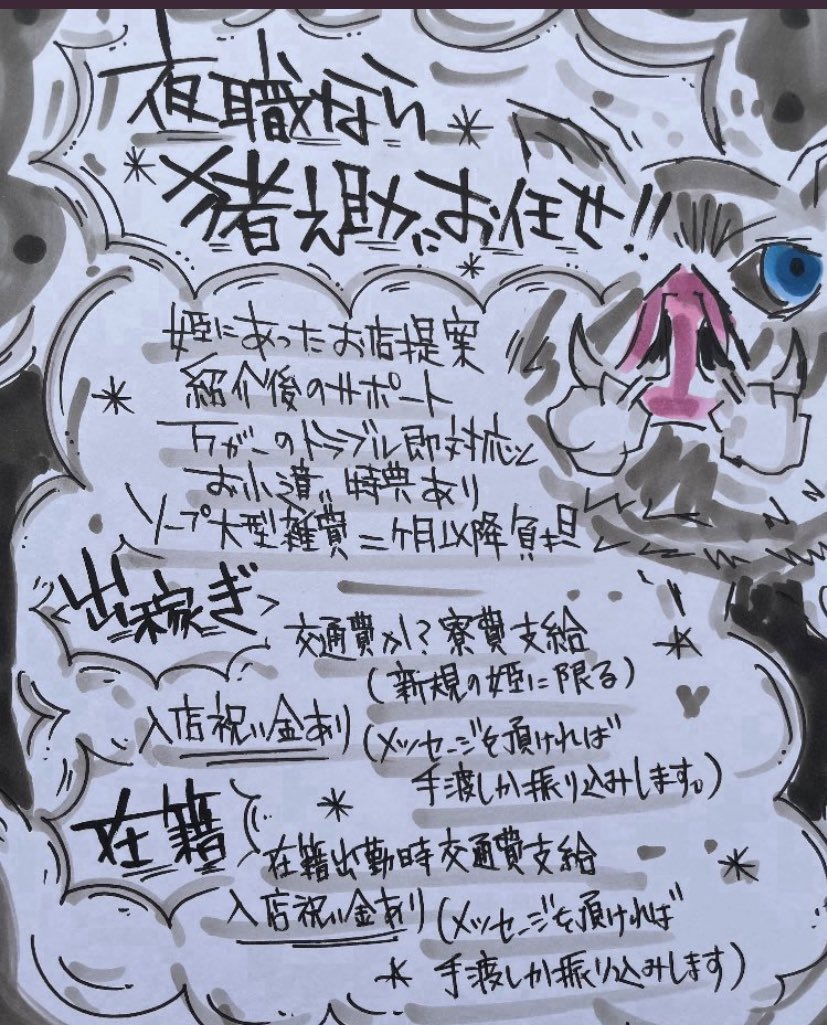 夜職なら
猪之助にお任せ!!
姫にあったお店提案
紹介後のサポート
万が一のトラブル即対応
お小遣い特典あり
ソープ大型雑費二ヶ月以降負担
出稼ぎ
交通費か?寮費支給
(新規の姫に限る)
入店祝い金あり(メッセージを頂ければ
手渡しか振り込みします。)
在籍
在籍出勤時交通費支給
入店祝い金あり(メッセージを頂ければ
手渡しか振り込みします)